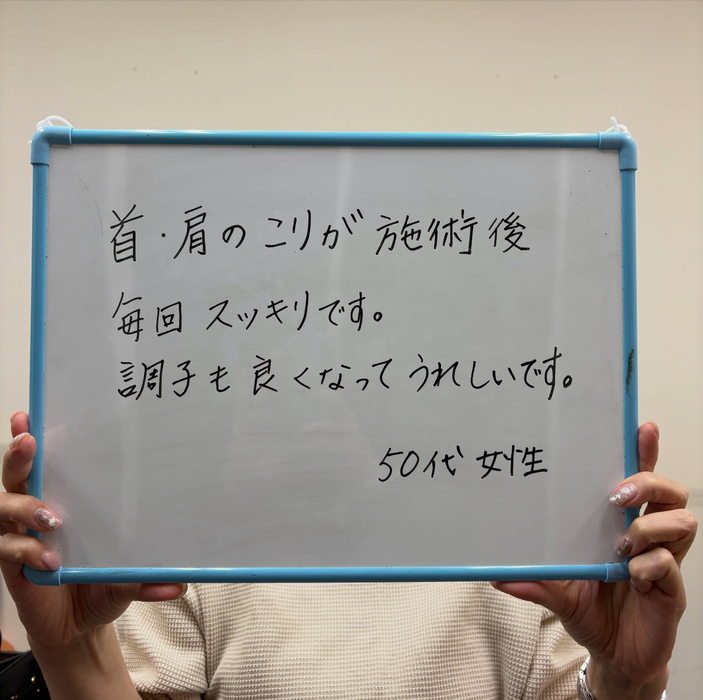 首・肩のこりが施術後
毎回スッキリです。
調子も良くなってうれしいです。
50代 女性